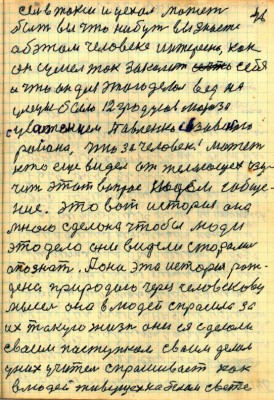 сел в такси и уехал может
быть вы что нибут вы знаете
об этом человека интересно, как
он сумел так закалит себя
и что он для этого делал вед на
улице было 12 градусов мороза
с уважением Павленко
района, что за человек! может
кто еще видел он желающих изу
чит этот вапрос ждем сообще
ние. это вот история она
много сделана чтобы люди
это дело они видели старали
опознат. Пони эта история рож
дена природаю через человекову
мысл она в людей спрасила за
их такую жизн они ея сделали
своим паступком своим делам
у них учител спрашивает как
в людей живущих на белам свете